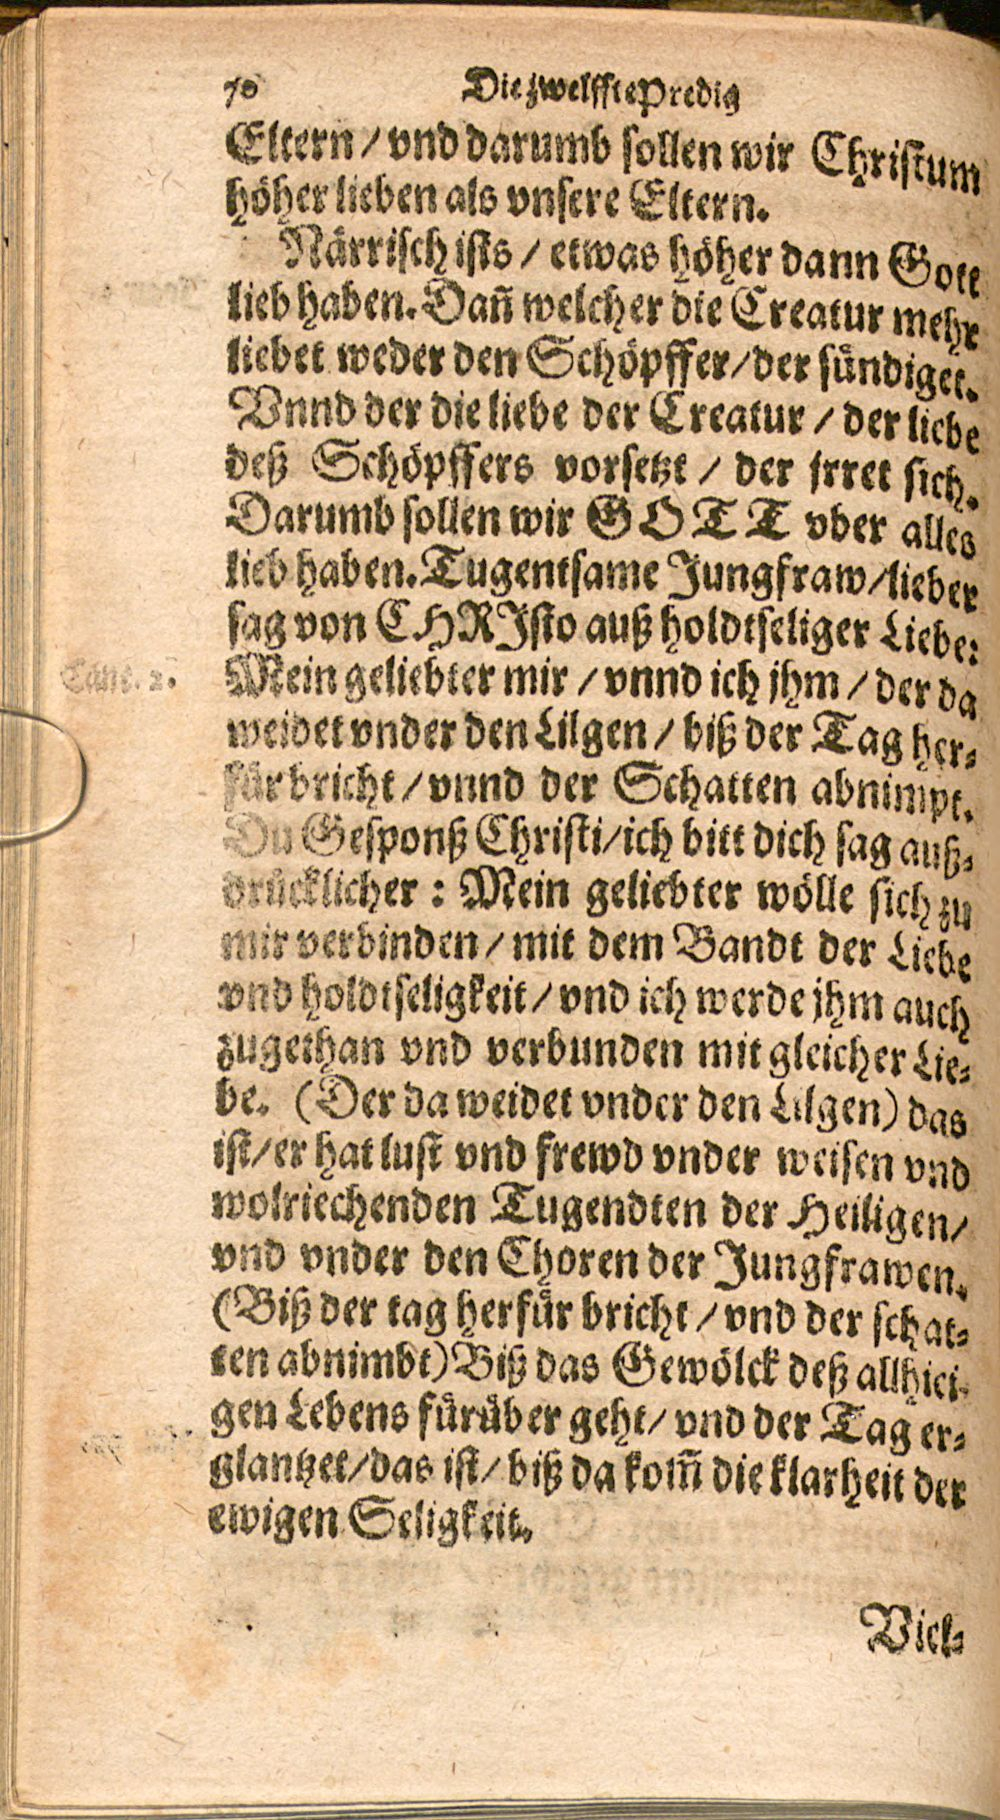 70 Die zwelffte Predig
Eltern / vnd darumb sollen wir Christum
höher lieben als vnsere Eltern.
Närrisch ists / etwas höher dann Gott
lieb haben. Dañ welcher die Creatur mehr
liebet weder den Schöpffer / der sündiget.
Vnnd der die liebe der Creatur / der liebe
deß Schöpffers vorsetzt / der jrret sich.
Darumb sollen wir GOTT vber alles
lieb haben. Tugentsame Jungfraw / lieber
sag von CHRJsto auß holdtseliger Liebe:
Cant. 2. Mein geliebter mir / vnnd ich jhm / der da
weidet vnder den Lilgen / biß der Tag her-
für bricht / vnnd der Schatten abnimpt.
Du Gesponß Christi / ich bitt dich sag auß-
drücklicher : Mein geliebter wölle sich zu
mir verbinden / mit dem Bandt der Liebe
vnd holdtseligkeit / vnd ich werde jhm auch
zugethan vnd verbunden mit gleicher Lie-
be. (Der da weidet vnder den Lilgen) das
ist / er hat lust vnd frewd vnder weisen vnd
wolriechenden Tugendten der Heiligen /
vnd vnder den Choren der Jungfrawen.
(Biß der tag herfür bricht / vnd der schat-
ten abnimbt) Biß das Gewölck deß allhiei-
gen Lebens fürüber geht / vnd der Tag er-
glantzet / das ist / biß da kom̃ die klarheit der
ewigen Seligkeit.
Viel-